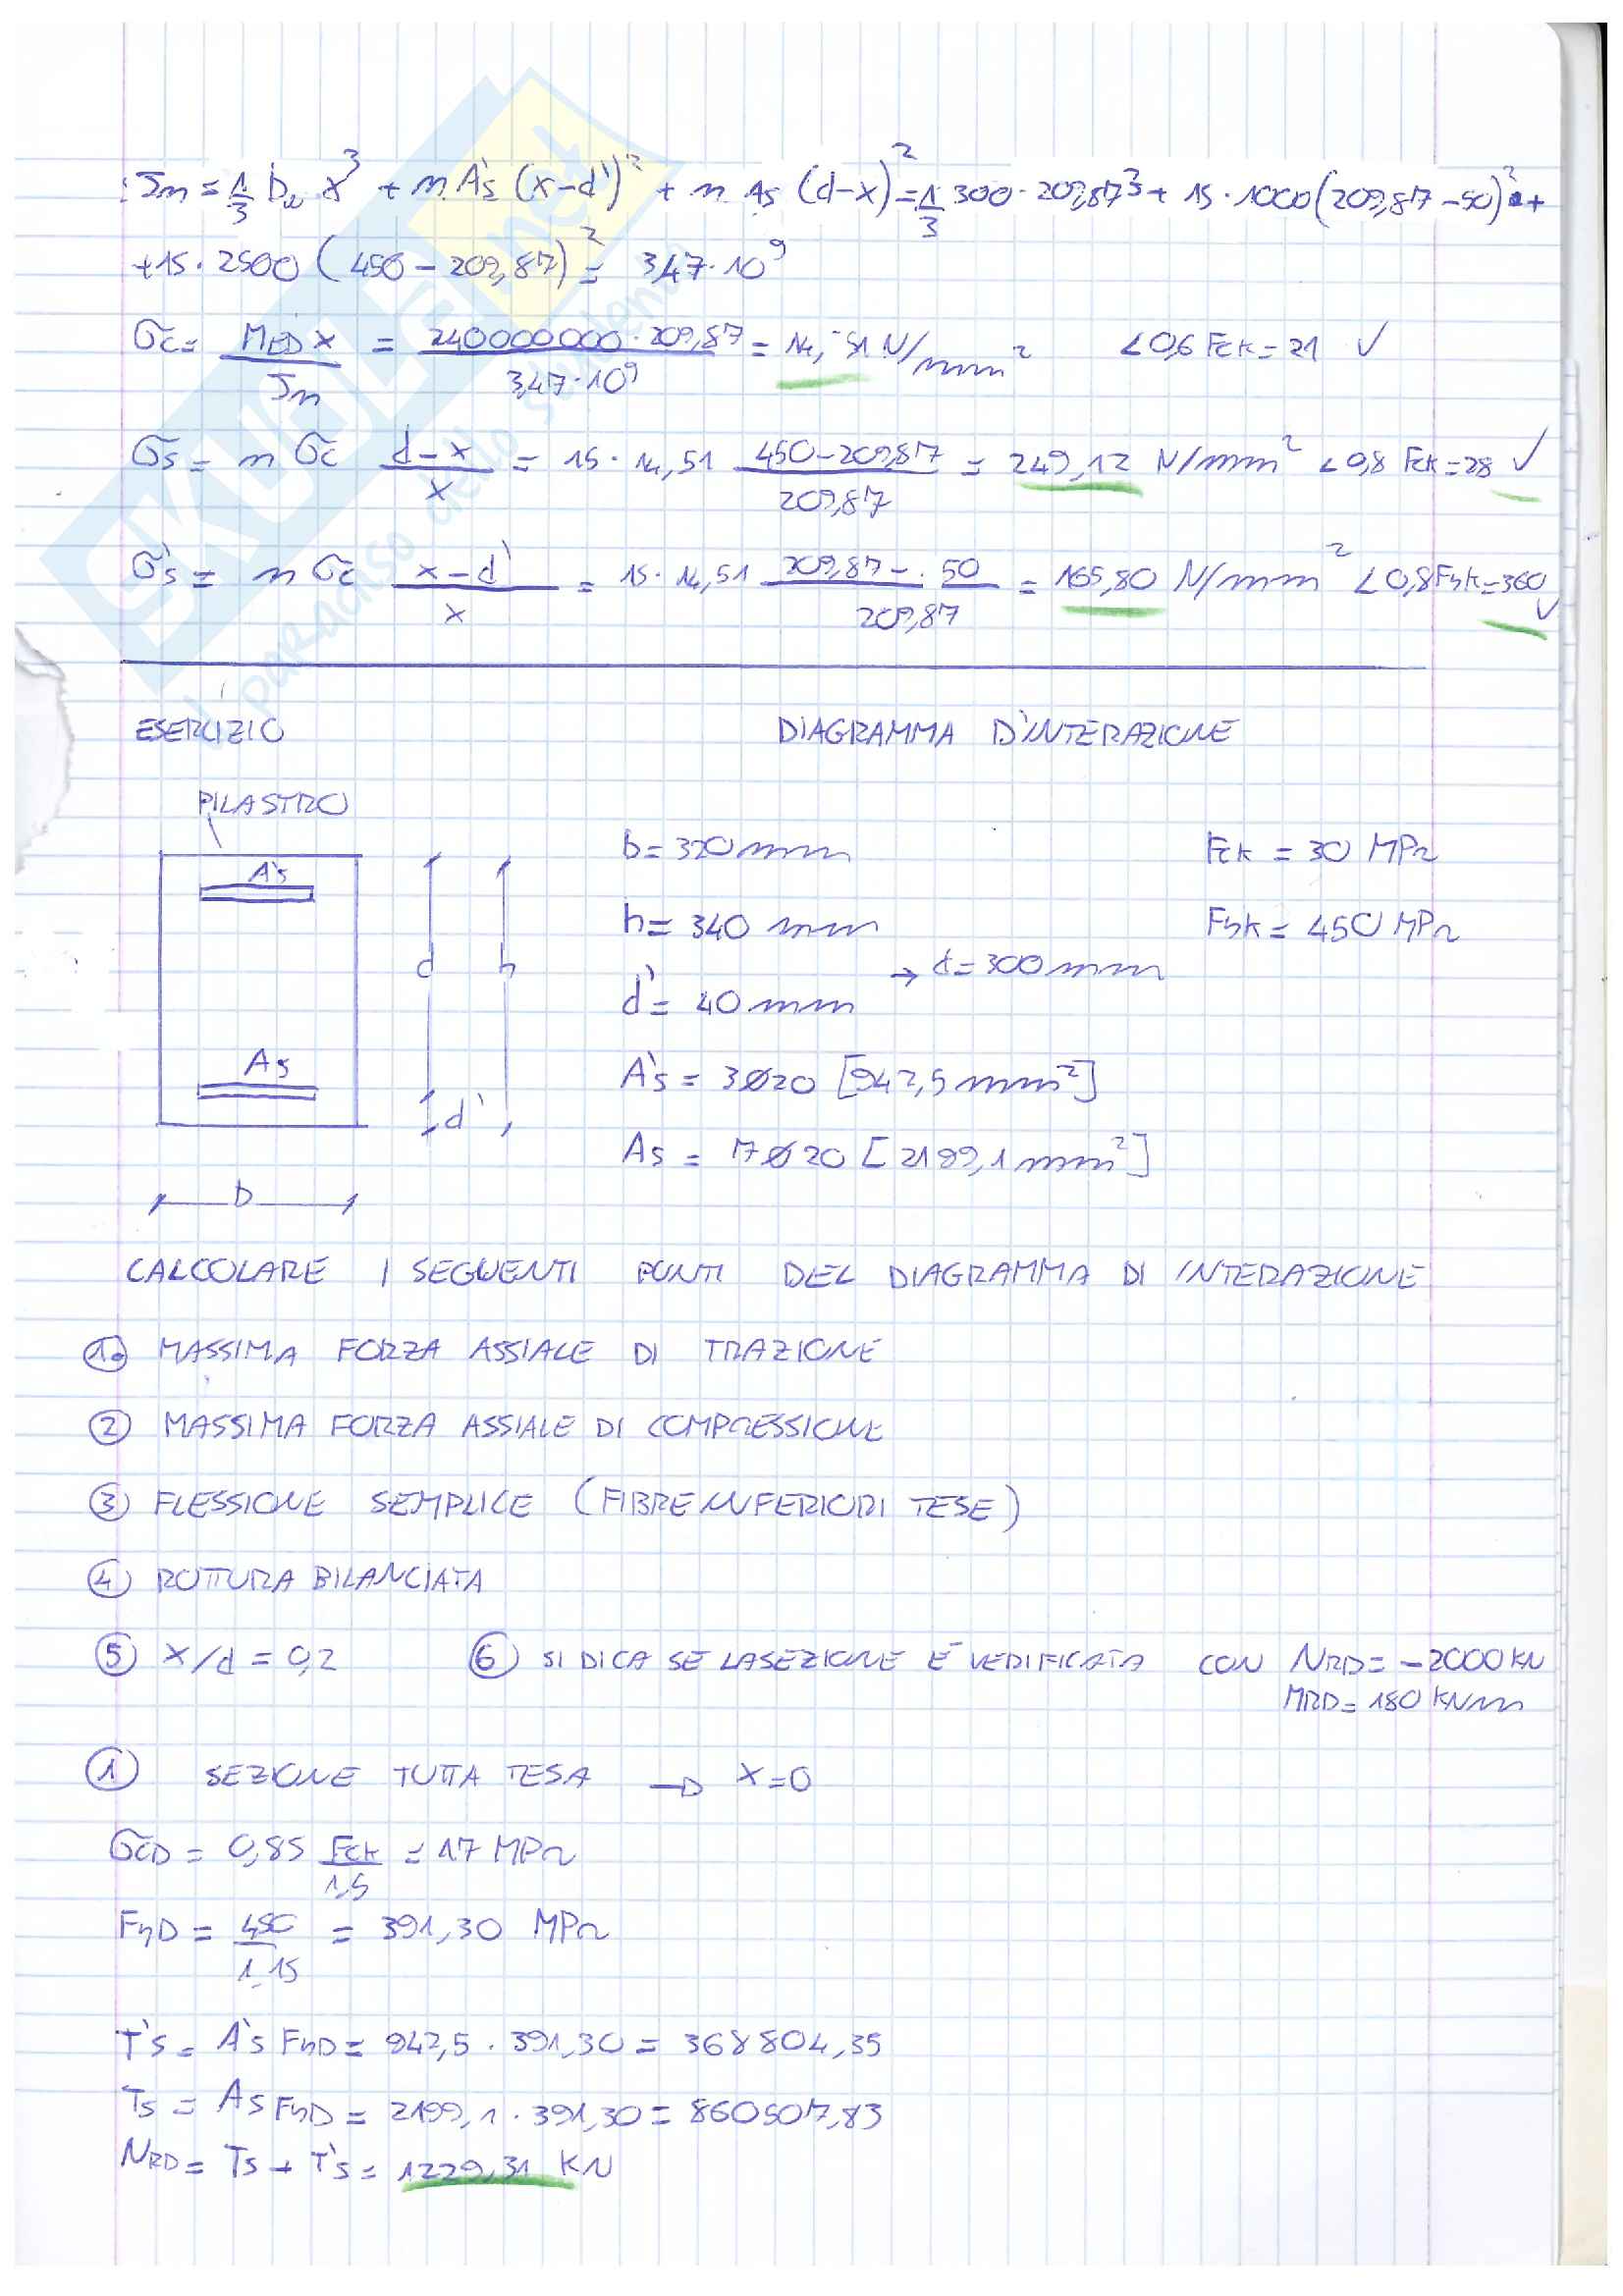 Jn = 1/3 b x³ + n A's (x-d')² + n As (d-x)² = 1/3 300 · 209,87³ + 15 · 1000 (209,87 - 50)² +
+ 15 · 2500 (450 - 209,87)² = 3,47 · 10⁹
σc = MED x / Jn = 240000000 · 209,87 / 3,47 · 10⁹ = 14,51 N/mm² < 0,6 Fck = 21 ✓
σs = n σc (d-x)/x = 15 · 14,51 (450 - 209,87)/209,87 = 249,12 N/mm² < 0,8 Fck = 28 ✓
σ's = n σc (x-d')/x = 15 · 14,51 (209,87 - 50)/209,87 = 165,80 N/mm² < 0,8 Fyk = 360 ✓
ESERCIZIO DIAGRAMMA D'INTERAZIONE
PILASTRO
A's
As
d
h
d'
b
b = 320 mm Fck = 30 MPa
h = 340 mm Fyk = 450 MPa
d' = 40 mm → d = 300 mm
A's = 3Ø20 [942,5 mm²]
As = 7Ø20 [2199,1 mm²]
CALCOLARE I SEGUENTI PUNTI DEL DIAGRAMMA DI INTERAZIONE
1. MASSIMA FORZA ASSIALE DI TRAZIONE
2 MASSIMA FORZA ASSIALE DI COMPRESSIONE
3 FLESSIONE SEMPLICE (FIBRE INFERIORI TESE)
4 ROTTURA BILANCIATA
5 x/d = 0,2 6 SI DICA SE LA SEZIONE E' VERIFICATA CON NRD = -2000 KN
MRD = 180 KNm
1 SEZIONE TUTTA TESA → x = 0
σCD = 0,85 Fck / 1,5 = 17 MPa
FyD = 450 / 1,15 = 391,30 MPa
T's = A's FyD = 942,5 · 391,30 = 368804,35
Ts = As FyD = 2199,1 · 391,30 = 860507,83
NRD = Ts + T's = 1229,31 KN
SKUOLA.net
il paradiso dello studente